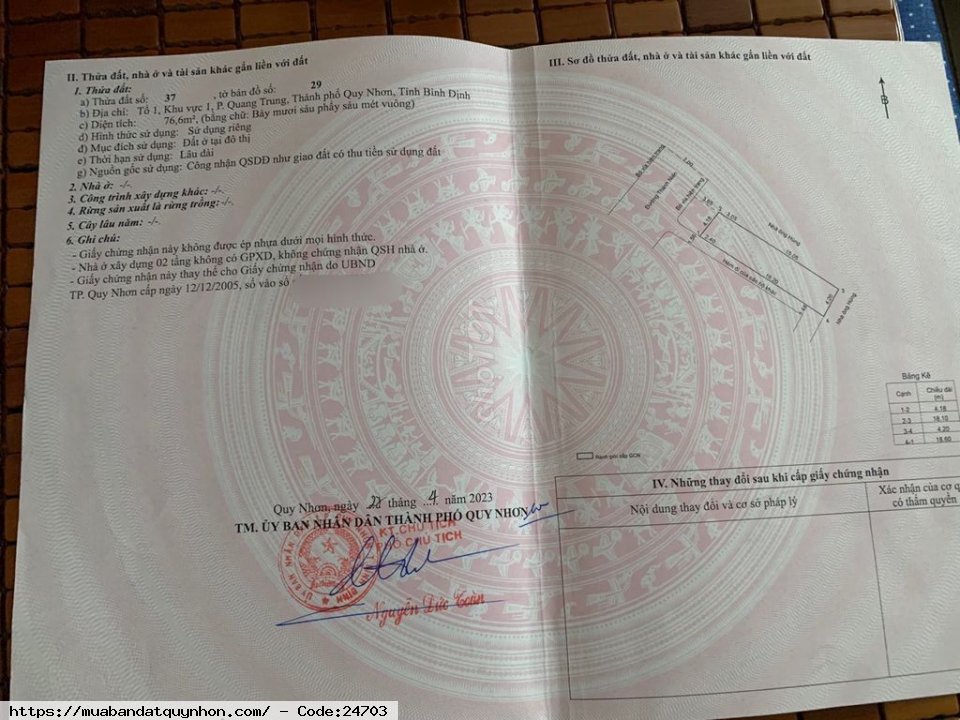 II. Thửa đất, nhà ở và tài sản khác gắn liền với đất
1. Thửa đất:
a) Thửa đất số: 37 , tờ bản đồ số: 29
b) Địa chỉ: Tổ 1, Khu vực 1, P. Quang Trung, Thành phố Quy Nhơn, Tỉnh Bình Định
c) Diện tích: 76,6m², (bằng chữ: Bảy mươi sáu phẩy sáu mét vuông)
d) Hình thức sử dụng: Sử dụng riêng
đ) Mục đích sử dụng: Đất ở tại đô thị
e) Thời hạn sử dụng: Lâu dài
g) Nguồn gốc sử dụng: Công nhận QSDĐ như giao đất có thu tiền sử dụng đất
2. Nhà ở: -/-
3. Công trình xây dựng khác: -/-
4. Rừng sản xuất là rừng trồng: -/-
5. Cây lâu năm: -/-
6. Ghi chú:
- Giấy chứng nhận này không được ép nhựa dưới mọi hình thức.
- Nhà ở xây dựng 02 tầng không có GPXD, không chứng nhận QSH nhà ở.
- Giấy chứng nhận này thay thế cho Giấy chứng nhận do UBND
TP. Quy Nhơn cấp ngày 12/12/2005, số vào sổ
Quy Nhơn, ngày 22 tháng 4 năm 2023
TM. ỦY BAN NHÂN DÂN THÀNH PHỐ QUY NHƠN
KT.CHỦ TỊCH
PHÓ CHỦ TỊCH
Nguyễn Đức Toàn
III. Sơ đồ thửa đất, nhà ở và tài sản khác gắn liền với đất
B
Bó vỉa hiện trạng
7.00
Đường Thanh Niên
Bó vỉa hiện trạng
4.18
3.05
Nhà ông Hùng
15.05
2.40
16.20
4.20
3
4
Nhà ông Hùng
Bảng Kê
Cạnh Chiều dài (m)
1-2 4.18
2-3 18.10
3-4 4.20
4-1 18.60
Ranh giới cấp GCN
IV. Những thay đổi sau khi cấp giấy chứng nhận
Nội dung thay đổi và cơ sở pháp lý
Xác nhận của cơ q
có thẩm quyền
https://muabandatquynhon.com/ - Code:24703